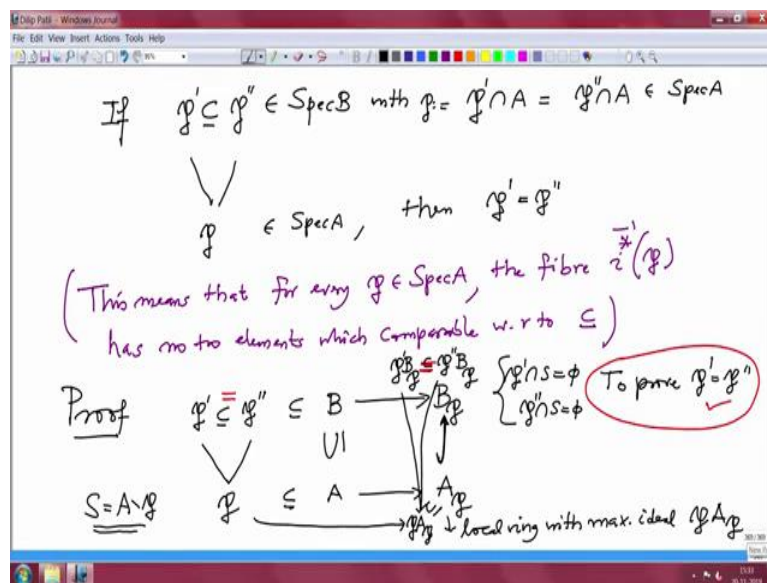 Dilip Patil - Windows Journal
File Edit View Insert Actions Tools Help
If 𝔭' ⊆ 𝔭'' ∈ Spec B with 𝔭 := 𝔭' ∩ A = 𝔭'' ∩ A ∈ Spec A
𝔭 ∈ Spec A, then 𝔭' = 𝔭''
(This means that for every 𝔭 ∈ Spec A, the fibre i*⁻¹(𝔭)
has no two elements which comparable w.r to ⊆)
𝔭'B𝔭 = 𝔭''B𝔭
Proof 𝔭' ⊆ 𝔭'' ⊆ B → B𝔭 { 𝔭'∩S=φ To prove 𝔭' = 𝔭''
= 𝔭''∩S=φ
U1
S = A∖𝔭 𝔭 ⊆ A → A𝔭
𝔭A𝔭 local ring with max. ideal 𝔭A𝔭
369/369
15:33